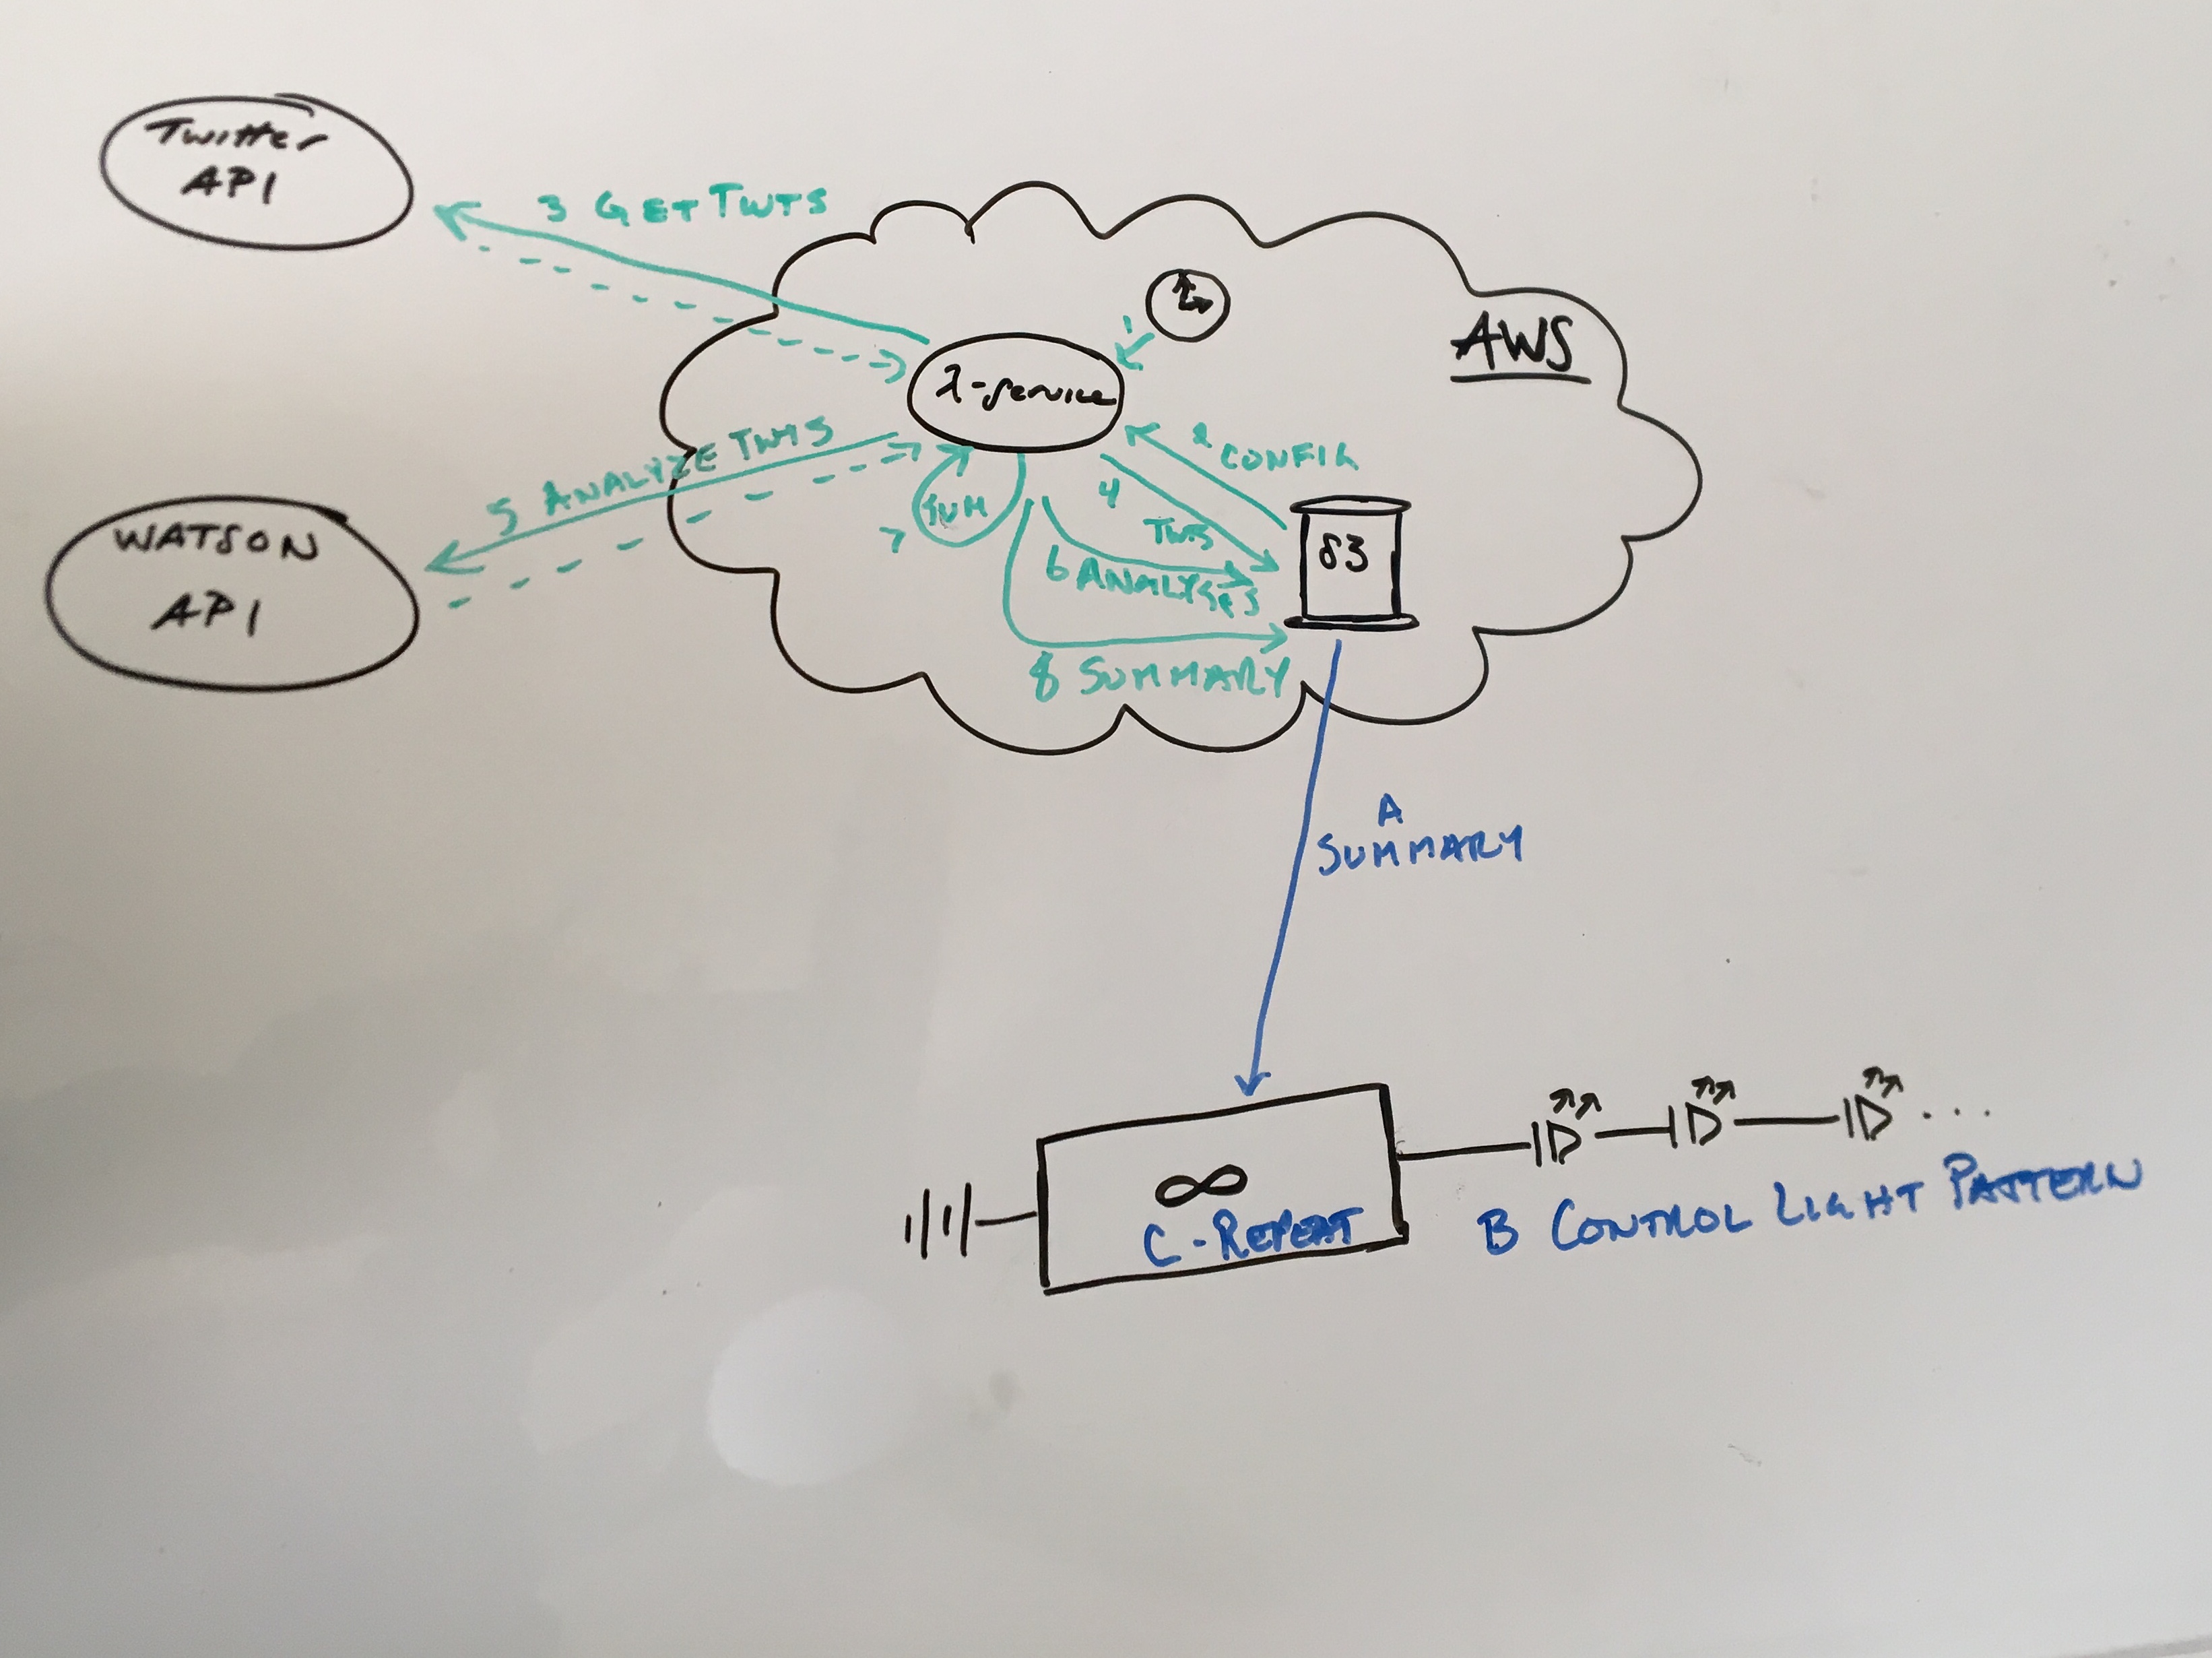 Twitter
API
3 GET TWTS
1
AWS
λ-service
2 CONFIG
5 ANALYZE TWTS
4
TWTS
SUM
7
S3
6 ANALYSES
WATSON
API
8 SUMMARY
A
SUMMARY
∞
C - REPEAT
B CONTROL LIGHT PATTERN